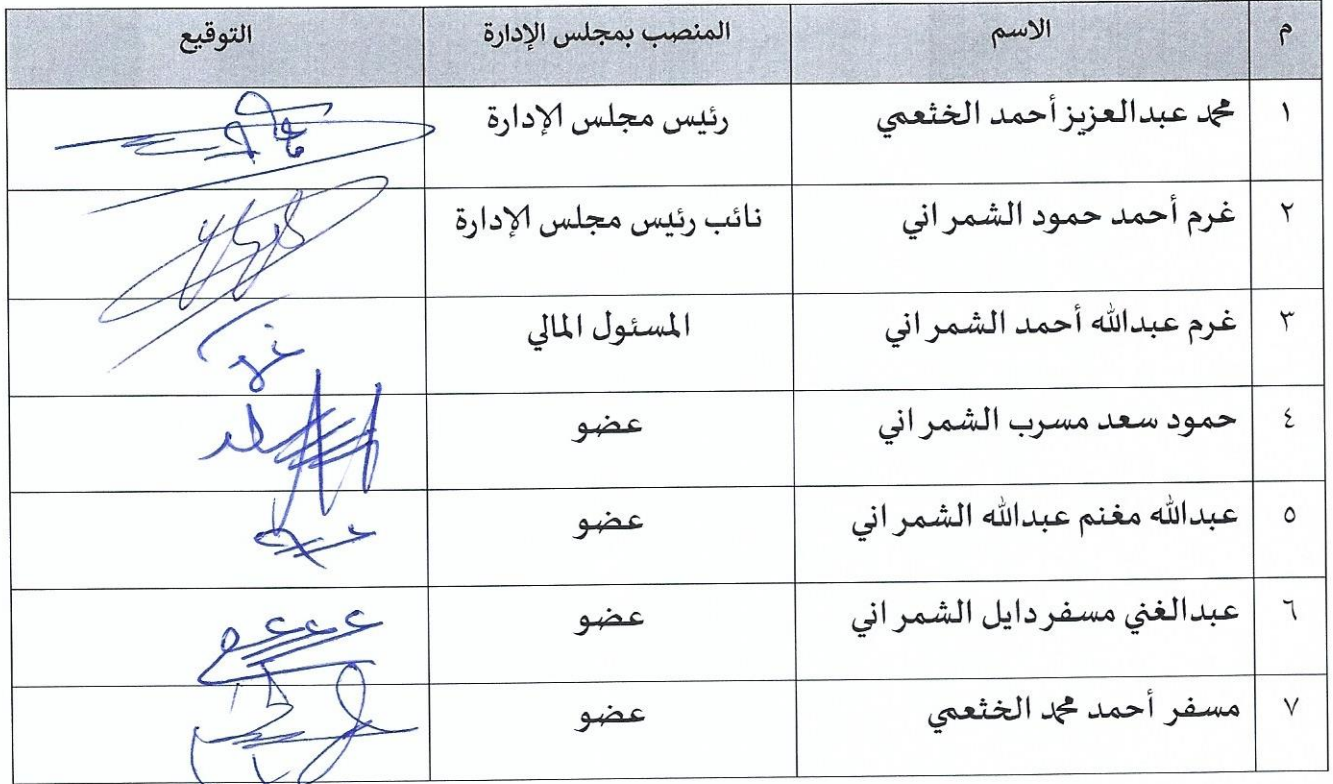 م الاسم المنصب بمجلس الإدارة التوقيع
١ محمد عبدالعزيز أحمد الخثعمي رئيس مجلس الإدارة
٢ غرم أحمد حمود الشمراني نائب رئيس مجلس الإدارة
٣ غرم عبدالله أحمد الشمراني المسئول المالي
٤ حمود سعد مسرب الشمراني عضو
٥ عبدالله مغنم عبدالله الشمراني عضو
٦ عبدالغني مسفر دايل الشمراني عضو
٧ مسفر أحمد محمد الخثعمي عضو